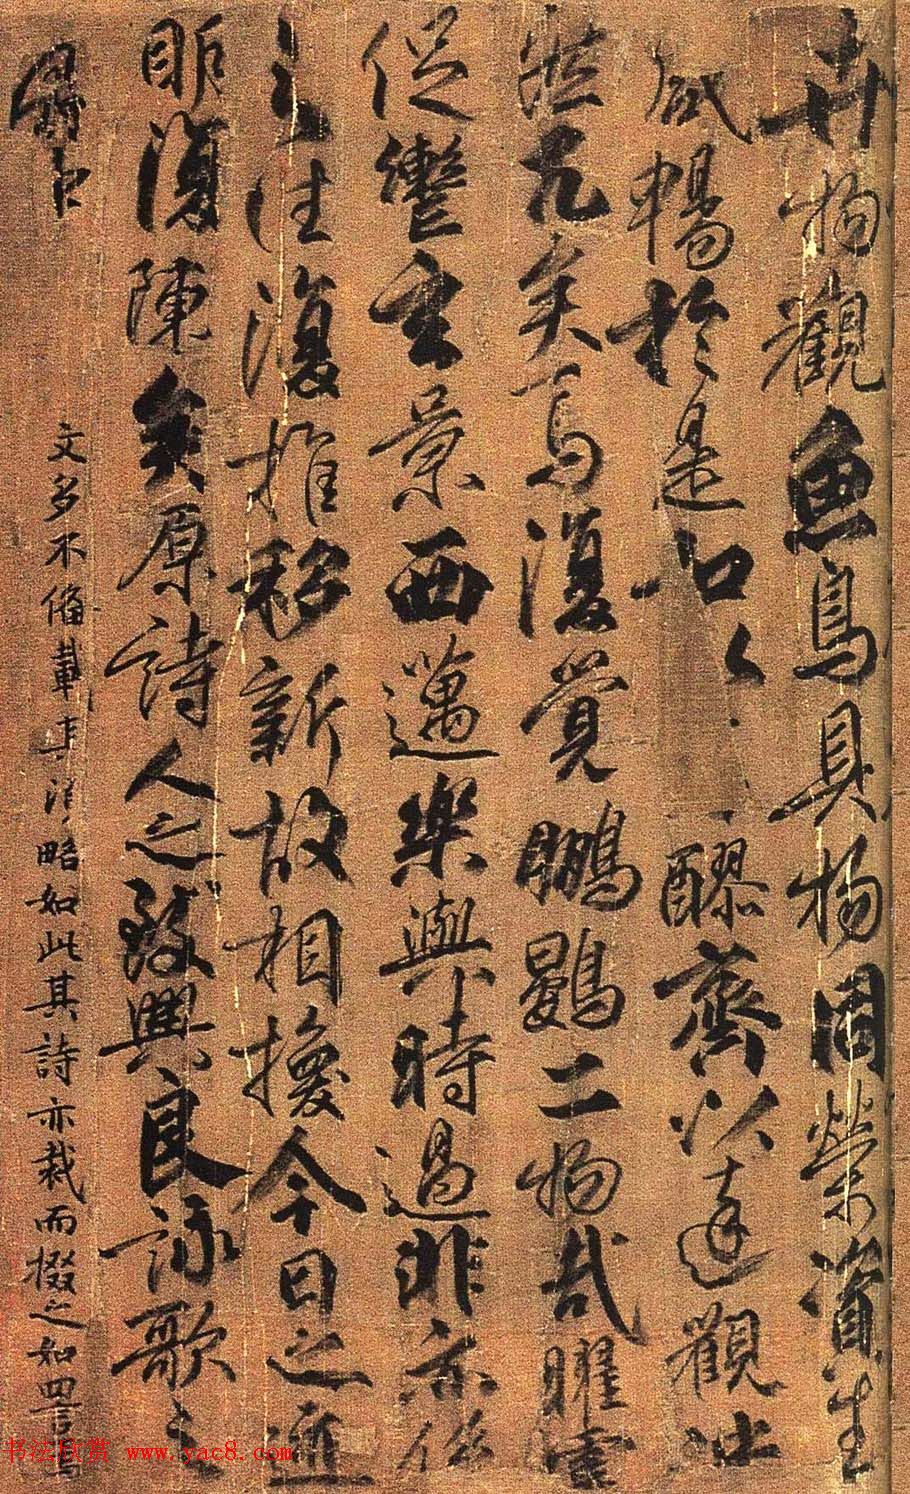 卉物觀魚鳥具物同榮資生
咸暢於是和醪齊以達觀泱
然兀矣焉復覺鵬鷃二物哉曜靈
促轡玄景西邁樂與時過悲亦係
之往復推移新故相換今日之迹
明復陳矣原詩人之致興良詠歌之
文多不備載其大略如此其詩亦裁而掇之如四言
书法欣赏 www.yac8.com